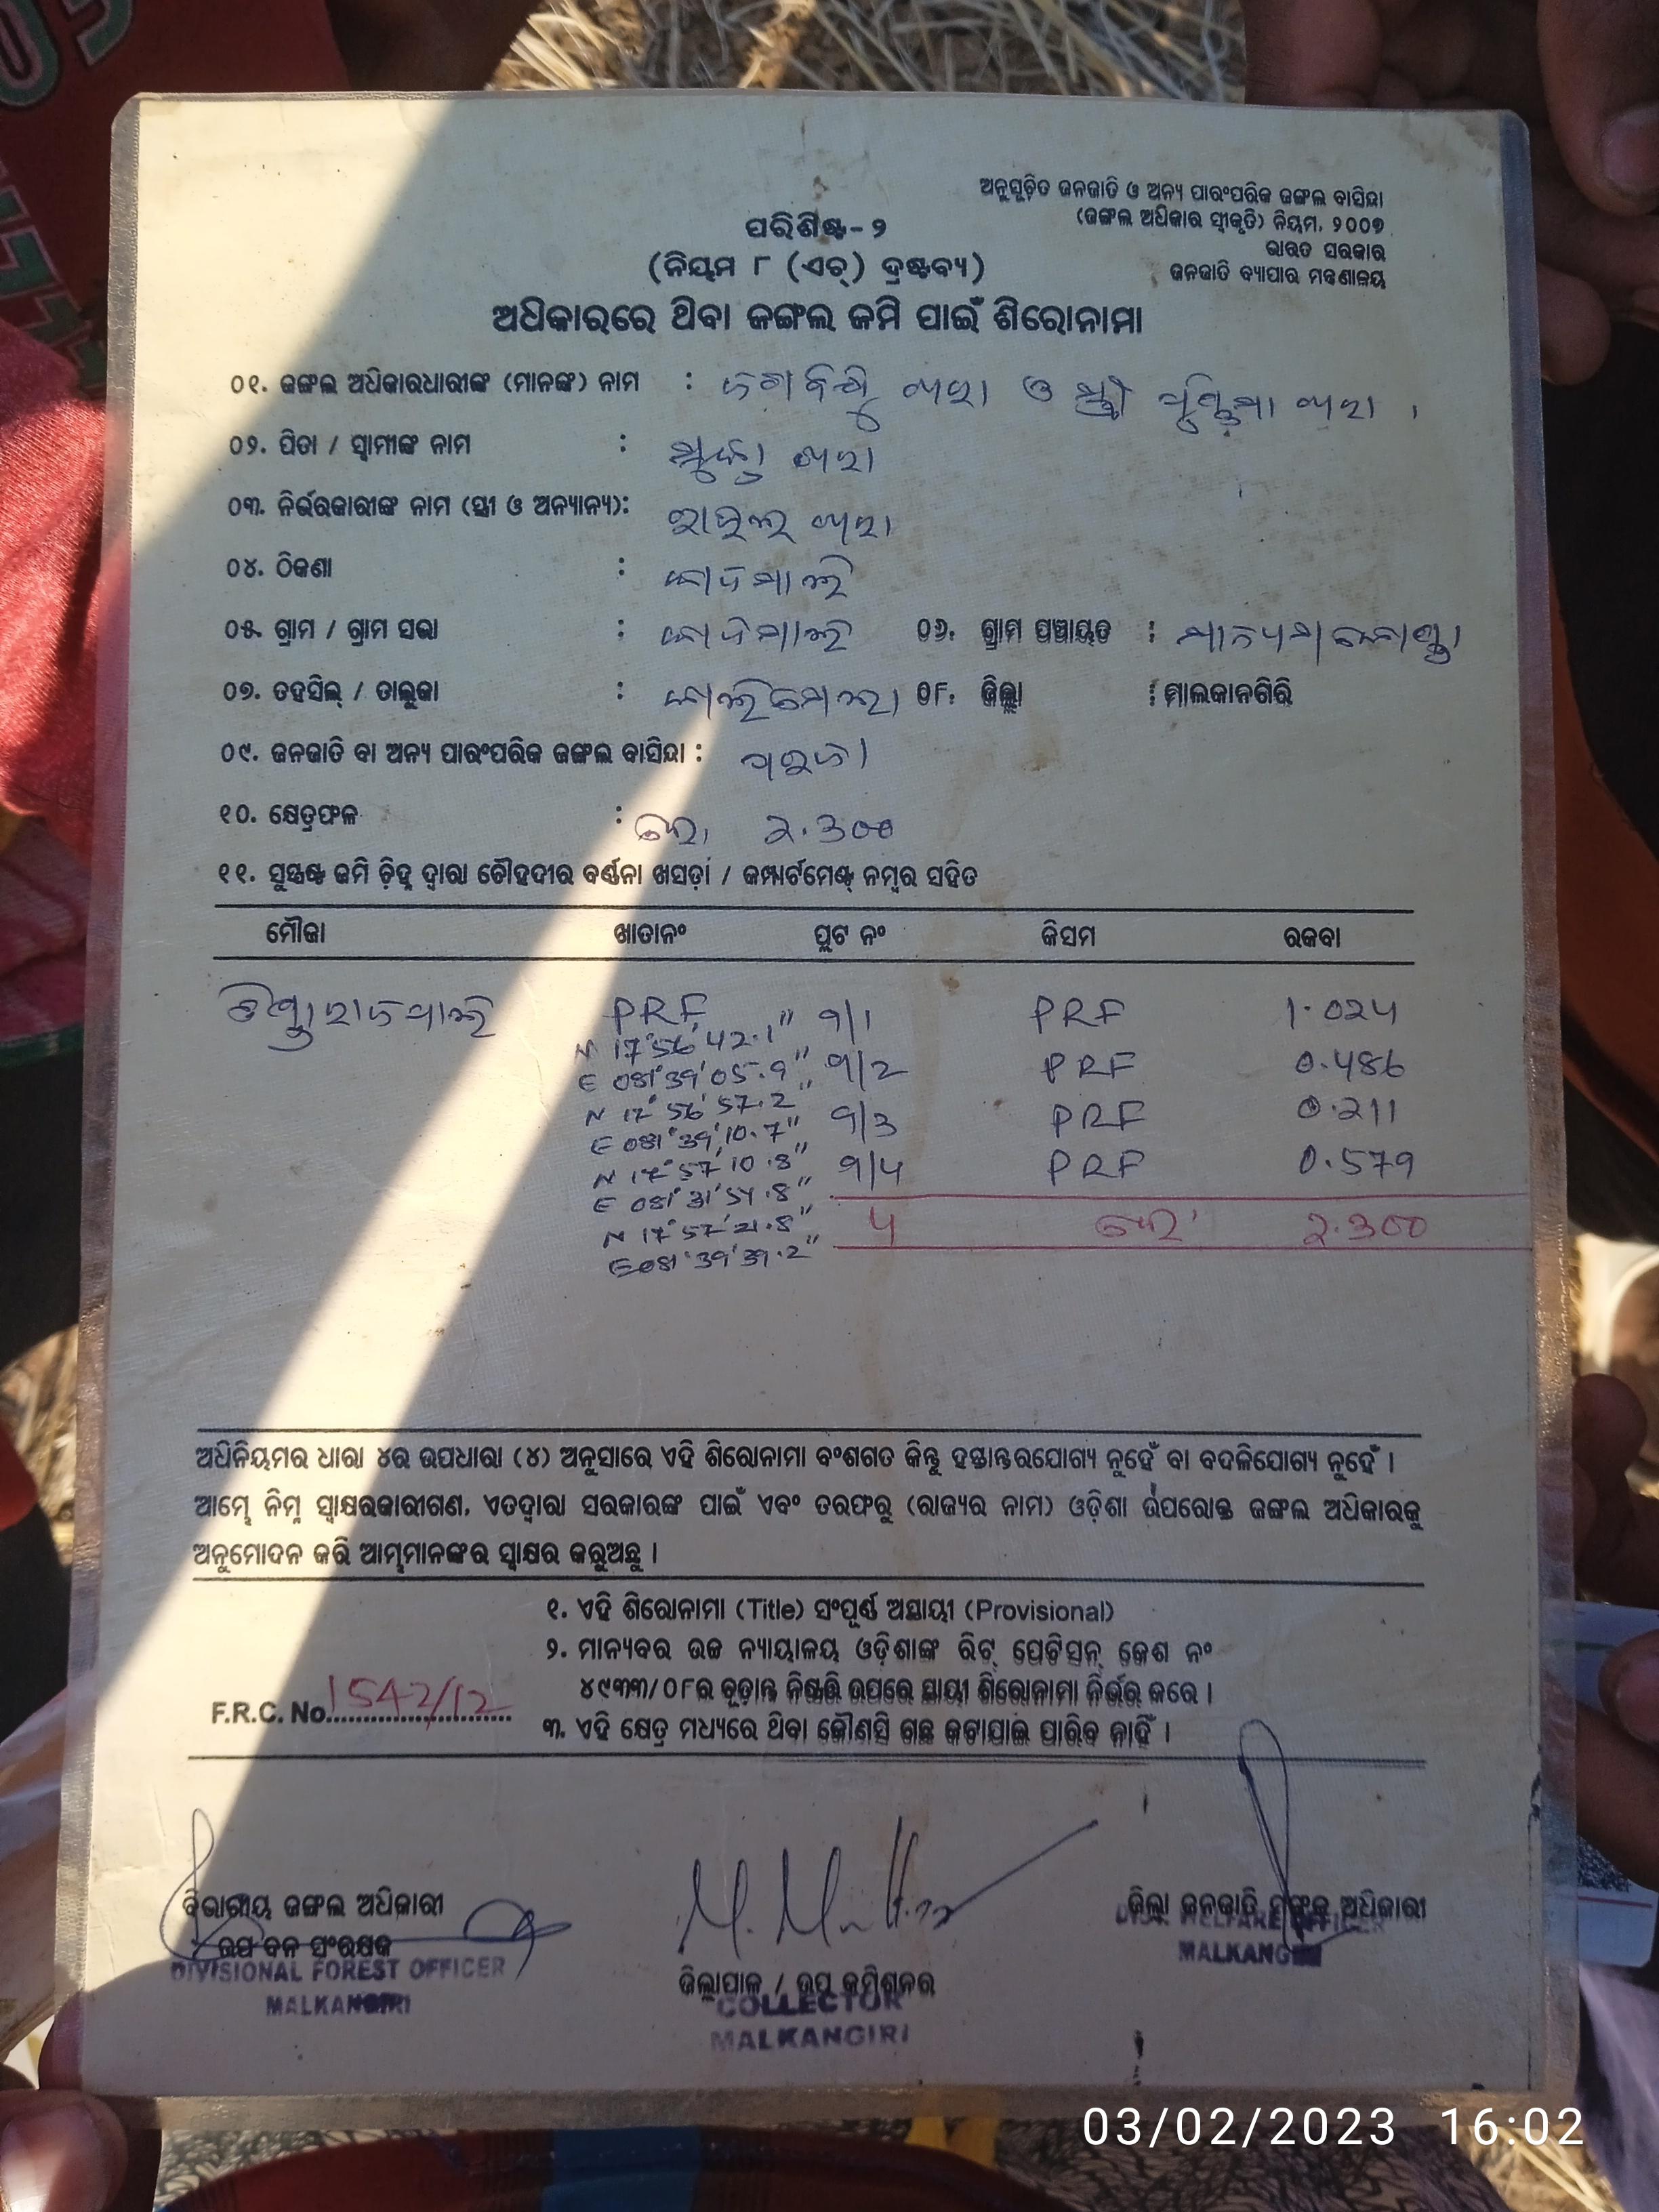 ଅନୁସୂଚିତ ଜନଜାତି ଓ ଅନ୍ୟ ପାରଂପରିକ ଜଙ୍ଗଲ ବାସିନ୍ଦା
(ଜଙ୍ଗଲ ଅଧିକାର ସ୍ୱୀକୃତି) ନିୟମ, ୨୦୦୭
ଭାରତ ସରକାର
ଜନଜାତି ବ୍ୟାପାର ମନ୍ତ୍ରଣାଳୟ
ପରିଶିଷ୍ଟ-୨
(ନିୟମ ୮ (ଏଚ୍) ଦ୍ରଷ୍ଟବ୍ୟ)
ଅଧିକାରରେ ଥିବା ଜଙ୍ଗଲ ଜମି ପାଇଁ ଶିରୋନାମା
୦୧. ଜଙ୍ଗଲ ଅଧିକାରଧାରୀଙ୍କ (ମାନଙ୍କ) ନାମ : ଖରା ଓ ସ୍ତ୍ରୀ ଖରା ।
୦୨. ପିତା / ସ୍ୱାମୀଙ୍କ ନାମ : ଖରା
୦୩. ନିର୍ଭରକାରୀଙ୍କ ନାମ (ସ୍ତ୍ରୀ ଓ ଅନ୍ୟାନ୍ୟ): ଖରା
୦୪. ଠିକଣା :
୦୫. ଗ୍ରାମ / ଗ୍ରାମ ସଭା : ୦୬. ଗ୍ରାମ ପଞ୍ଚାୟତ :
୦୭. ତହସିଲ୍ / ତାଲୁକା : କାଲିମେଲା ୦୮. ଜିଲ୍ଲା : ମାଲକାନଗିରି
୦୯. ଜନଜାତି ବା ଅନ୍ୟ ପାରଂପରିକ ଜଙ୍ଗଲ ବାସିନ୍ଦା : ପରଜା
୧୦. କ୍ଷେତ୍ରଫଳ : ହେ, ୨.୩୦୦
୧୧. ସୁସ୍ପଷ୍ଟ ଜମି ଚିହ୍ନ ଦ୍ୱାରା ଚୌହଦୀର ବର୍ଣ୍ଣନା ଖସଡ଼ା / କମ୍ପାର୍ଟମେଣ୍ଟ ନମ୍ବର ସହିତ
ମୌଜା ଖାତାନଂ ପ୍ଲଟ ନଂ କିସମ ରକବା
PRF 9/1 PRF 1.024
N 17°56'42.1"
E 081°39'05.9" 9/2 PRF 0.486
N 17°56'57.2"
E 081°39'10.7" 9/3 PRF 0.211
N 17°57'10.8" 9/4 PRF 0.579
E 081°31'54.8"
N 17°57'21.8" 4 ହେ' ୨.୩୦୦
E 081°39'39.2"
ଅଧିନିୟମର ଧାରା ୪ର ଉପଧାରା (୪) ଅନୁସାରେ ଏହି ଶିରୋନାମା ବଂଶଗତ କିନ୍ତୁ ହସ୍ତାନ୍ତରଯୋଗ୍ୟ ନୁହେଁ ବା ବଦଳିଯୋଗ୍ୟ ନୁହେଁ ।
ଆମ୍ଭେ ନିମ୍ନ ସ୍ୱାକ୍ଷରକାରୀଗଣ, ଏତଦ୍ୱାରା ସରକାରଙ୍କ ପାଇଁ ଏବଂ ତରଫରୁ (ରାଜ୍ୟର ନାମ) ଓଡ଼ିଶା ଉପରୋକ୍ତ ଜଙ୍ଗଲ ଅଧିକାରକୁ
ଅନୁମୋଦନ କରି ଆମ୍ଭମାନଙ୍କର ସ୍ୱାକ୍ଷର କରୁଅଛୁ ।
୧. ଏହି ଶିରୋନାମା (Title) ସଂପୂର୍ଣ୍ଣ ଅସ୍ଥାୟୀ (Provisional)
୨. ମାନ୍ୟବର ଉଚ୍ଚ ନ୍ୟାୟାଳୟ ଓଡ଼ିଶାଙ୍କ ରିଟ୍ ପେଟିସନ୍ କେଶ ନଂ
୪୯୩୩/୦୮ର ଚୂଡ଼ାନ୍ତ ନିଷ୍ପତ୍ତି ଉପରେ ସ୍ଥାୟୀ ଶିରୋନାମା ନିର୍ଭର କରେ ।
F.R.C. No. 1542/12
୩. ଏହି କ୍ଷେତ୍ର ମଧ୍ୟରେ ଥିବା କୌଣସି ଗଛ କଟାଯାଇ ପାରିବ ନାହିଁ ।
ବିଭାଗୀୟ ଜଙ୍ଗଲ ଅଧିକାରୀ
/ ଉପ ବନ ସଂରକ୍ଷକ
DIVISIONAL FOREST OFFICER
MALKANGIRI
ଜିଲ୍ଲାପାଳ / ଉପ କମିଶନର
COLLECTOR
MALKANGIRI
ଜିଲ୍ଲା ଜନଜାତି ମଙ୍ଗଳ ଅଧିକାରୀ
DIST. WELFARE OFFICER
MALKANGIRI
03/02/2023 16:02